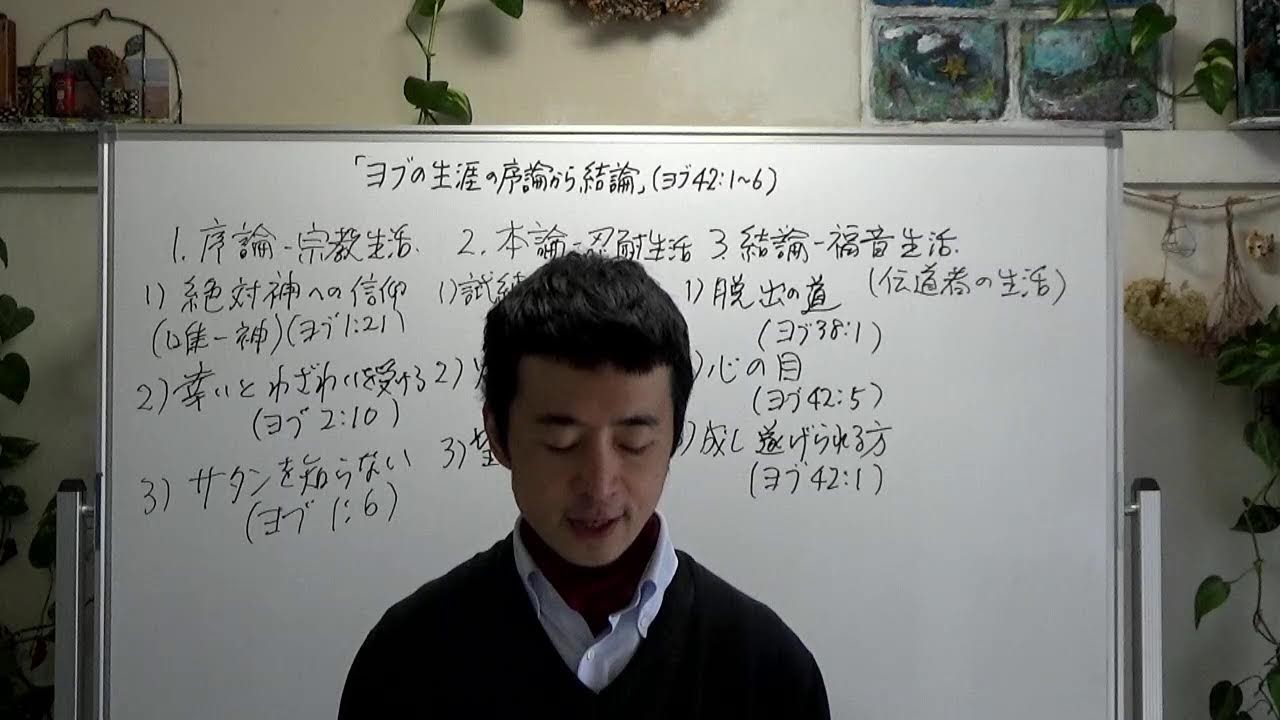 「ヨブの生涯の序論から、結論」(ヨブ42:1~6)
1. 序論-宗教生活. 2. 本論-忍耐生活 3. 結論-福音生活.
1) 絶対神への信仰
(唯一神)(ヨブ1:21)
2) 幸いとわざわいを受ける
(ヨブ 2:10)
3) サタンを知らない
(ヨブ 1:6)
1) 試練
2)
3) 望
(伝道者の生活)
1) 脱出の道
(ヨブ38:1)
) 心の目
(ヨブ42:5)
3) 成し遂げられる方
(ヨブ42:1)